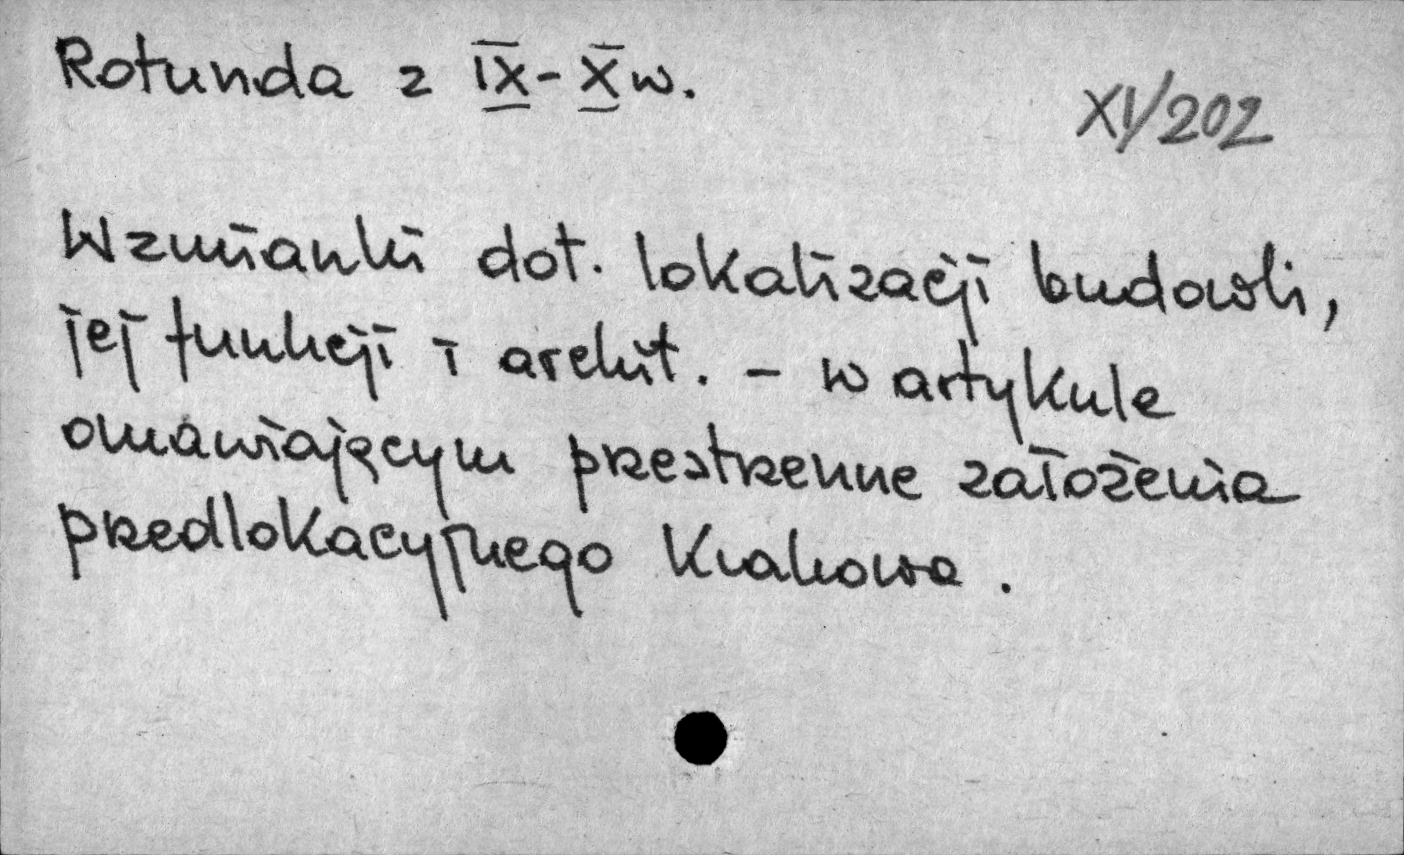 Rotunda z IX-X w.
XI/202
Wzmianki dot. lokalizacji budowli,
jej funkcji i archit. - w artykule
omawiającym przestrzenne założenia
przedlokacyjnego Krakowa.